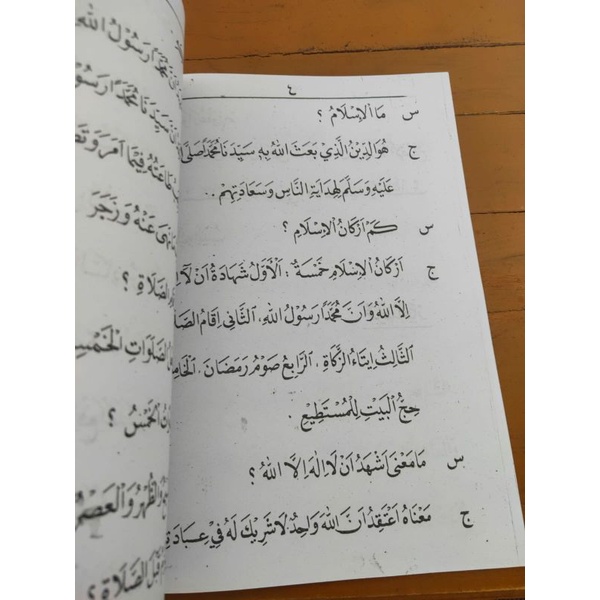 ٤
س مَا الْاِسْلَامُ ؟
ج هُوَ الدِّيْنُ الَّذِيْ بَعَثَ اللهُ بِهِ سَيِّدَنَا مُحَمَّدًا صَلَّى
عَلَيْهِ وَسَلَّمَ لِهِدَايَةِ النَّاسِ وَسَعَادَتِهِمْ . .
س كَمْ اَرْكَانُ الْاِسْلَامِ ؟
ج اَرْكَانُ الْاِسْلَامِ خَمْسَةٌ : اَلْاَوَّلُ شَهَادَةُ اَنْ لَا
اِلَّا اللهُ وَاَنَّ مُحَمَّدًا رَسُوْلُ اللهِ، اَلثَّانِى اِقَامُ
اَلثَّالِثُ اِيْتَاءُ الزَّكَاةِ . اَلرَّابِعُ صَوْمُ رَمَضَانَ .
حِجُّ الْبَيْتِ لِلْمُسْتَطِيْعِ .
س مَا مَعْنَى اَشْهَدُ اَنْ لَا اِلٰهَ اِلَّا اللهُ ؟
ج مَعْنَاهُ اَعْتَقِدُ اَنَّ اللهَ وَاحِدٌ لَا شَرِيْكَ لَهُ فِيْ عِبَادَ
مُحَمَّدًا رَسُوْلُ اللهِ
سَيِّدَنَا مُحَمَّدًا رَسُوْ
طَاعَتُهُ فِيْمَا اَمَرَ وَ
عَنْهُ وَزَجَرَ
الصَّلَاةِ ؟
الصَّلَوَاتِ الْخَمْسِ
الْخَمْسُ ؟
وَالظُّهْرُ وَالْعَصْرُ
قَبْلَ الصَّلَاةِ ؟